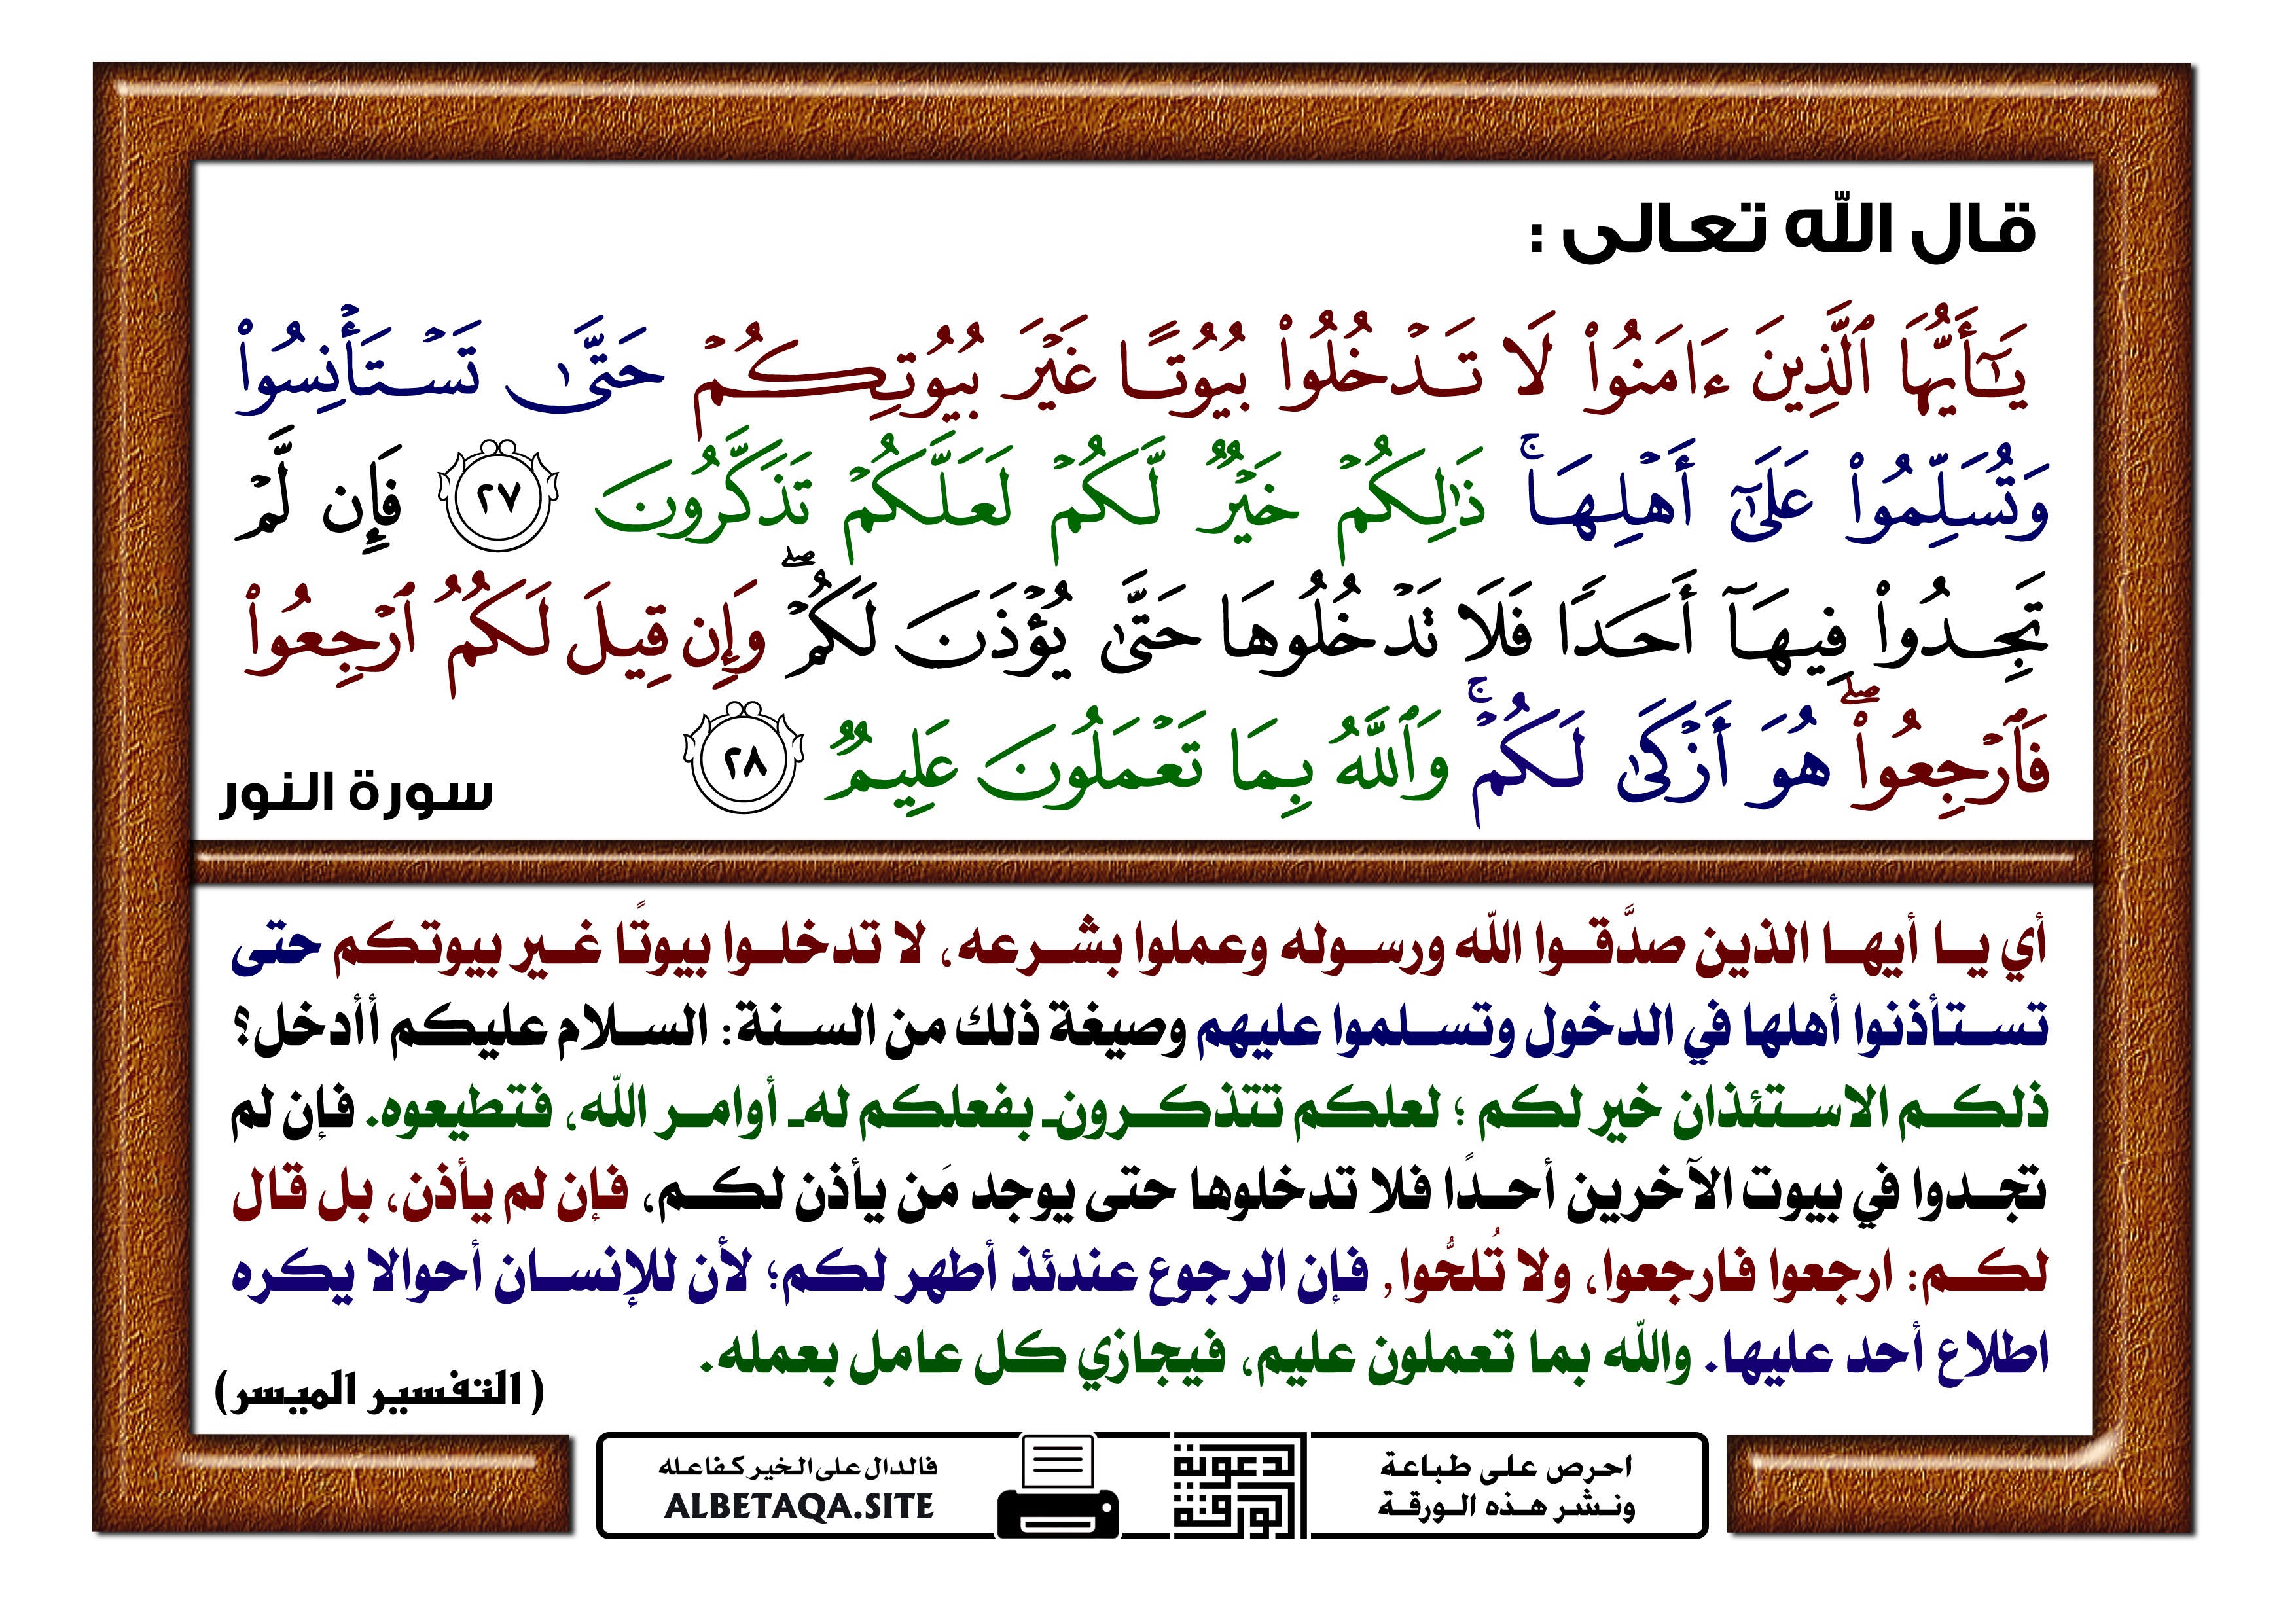 قال الله تعالى :
يَٰٓأَيُّهَا ٱلَّذِينَ ءَامَنُوا۟ لَا تَدْخُلُوا۟ بُيُوتًا غَيْرَ بُيُوتِكُمْ حَتَّىٰ تَسْتَأْنِسُوا۟
وَتُسَلِّمُوا۟ عَلَىٰٓ أَهْلِهَا ۚ ذَٰلِكُمْ خَيْرٌ لَّكُمْ لَعَلَّكُمْ تَذَكَّرُونَ ٢٧ فَإِن لَّمْ
تَجِدُوا۟ فِيهَآ أَحَدًا فَلَا تَدْخُلُوهَا حَتَّىٰ يُؤْذَنَ لَكُمْ ۖ وَإِن قِيلَ لَكُمُ ٱرْجِعُوا۟
فَٱرْجِعُوا۟ ۖ هُوَ أَزْكَىٰ لَكُمْ ۚ وَٱللَّهُ بِمَا تَعْمَلُونَ عَلِيمٌ ٢٨
سورة النور
أي يا أيها الذين صدَّقوا الله ورسوله وعملوا بشرعه، لا تدخلوا بيوتًا غير بيوتكم حتى
تستأذنوا أهلها في الدخول وتسلموا عليهم وصيغة ذلك من السنة: السلام عليكم أأدخل؟
ذلكم الاستئذان خير لكم ؛ لعلكم تتذكرون- بفعلكم له- أوامر الله، فتطيعوه. فإن لم
تجدوا في بيوت الآخرين أحدًا فلا تدخلوها حتى يوجد مَن يأذن لكم، فإن لم يأذن، بل قال
لكم: ارجعوا فارجعوا، ولا تُلحُّوا, فإن الرجوع عندئذ أطهر لكم؛ لأن للإنسان أحوالا يكره
اطلاع أحد عليها. والله بما تعملون عليم، فيجازي كل عامل بعمله.
( التفسير الميسر)
احرص على طباعة
ونشر هذه الورقة
لدعوتة
الورقتة
فالدال على الخير كفاعله
ALBETAQA.SITE